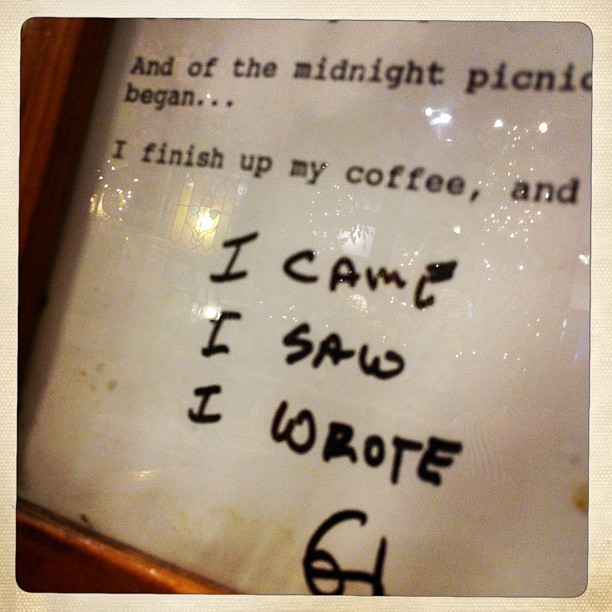 And of the midnight picnic
began...
I finish up my coffee, and
I CAME
I SAW
I WROTE